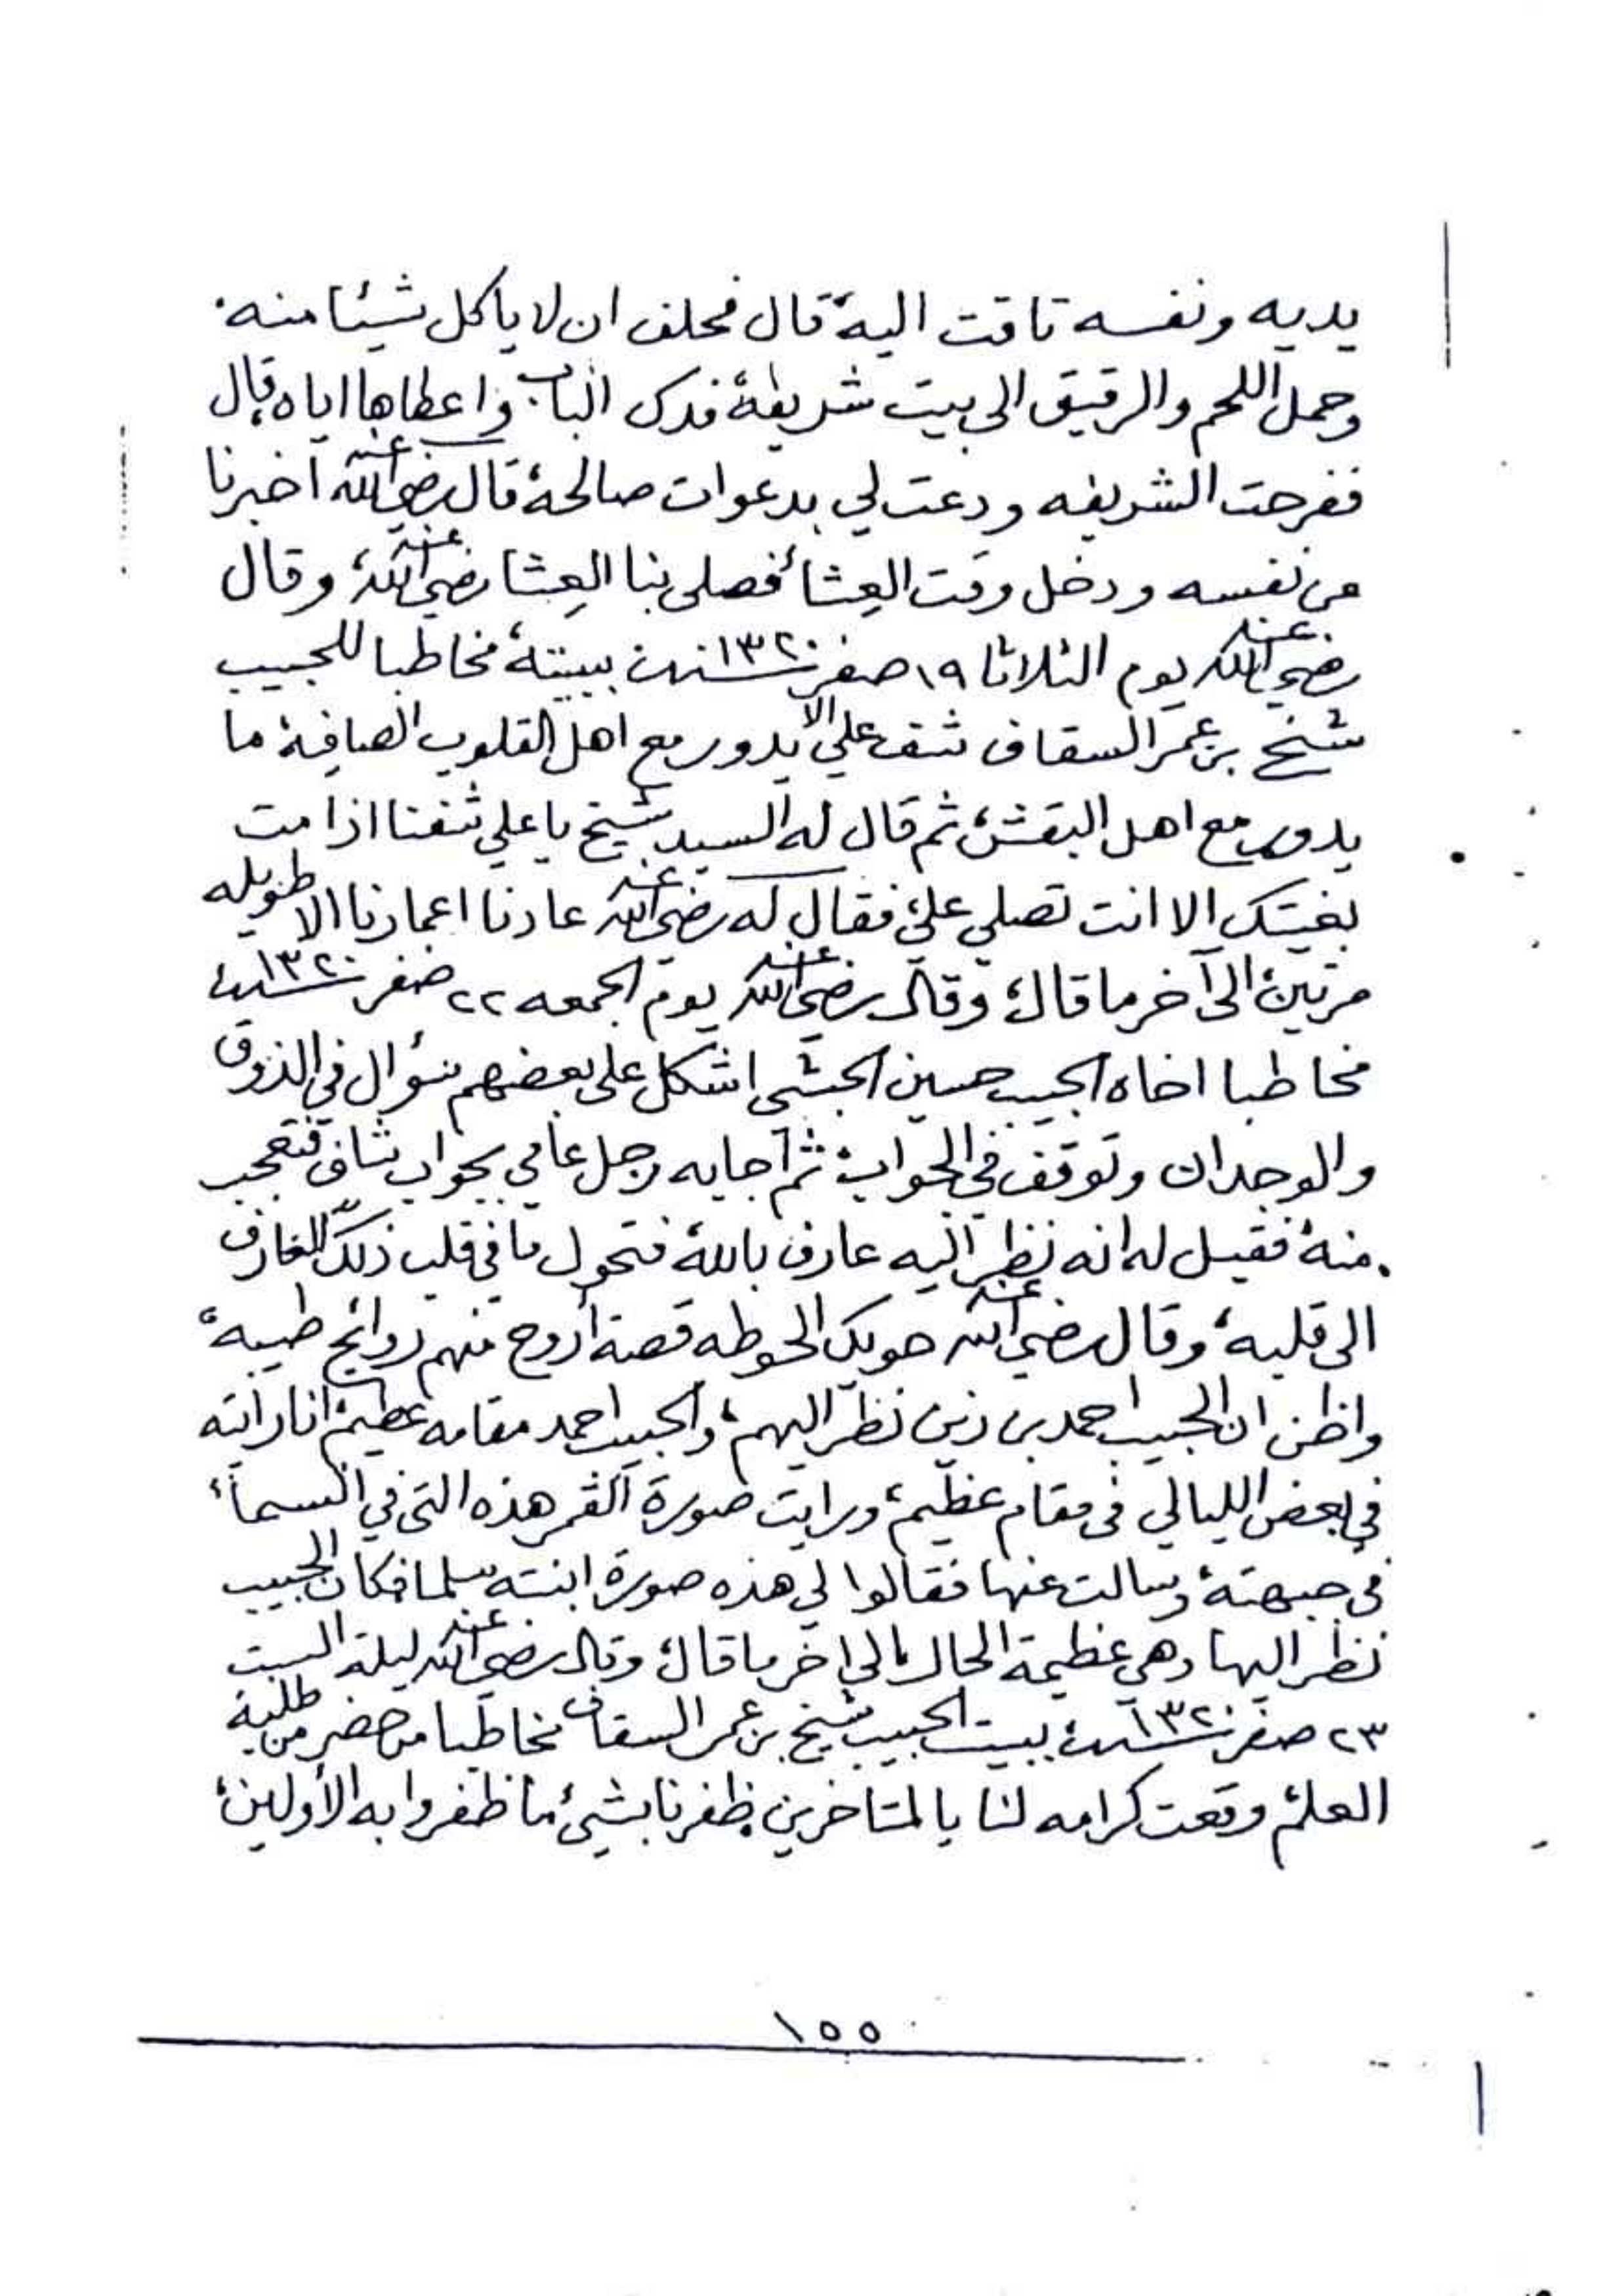 يديه ونفسه تاقت اليه، قال فحلف ان لا ياكل شيئا منه.
وحمل اللحم والرقيق الى بيت شريفة، فدك الباب واعطاها اياه، قال
ففرحت الشريفه ودعت لي بدعوات صالحة، قال رضي الله عنه اخبرنا
عن نفسه ودخل وقت العشاء فصلى بنا العشا رضي الله عنه، وقال
رضي الله عنه يوم الثلاثا ١٩ صفر سنة ١٣٢٠ ببيته، مخاطبا للحبيب
شيخ بن عمر السقاف شف علي الا يدور مع اهل القلوب الصافية، ما
يدور مع اهل البقش، ثم قال له السيد شيخ يا علي شفنا اذا مت
بغيتك الا انت تصلي علي، فقال له رضي الله عنه عادنا اعمارنا الا طويله
مرتين، الى آخر ما قال، وقال رضي الله عنه يوم الجمعه ٢٢ صفر سنة ١٣٢٠
مخاطبا اخاه الحبيب حسين الحبشي اشكل على بعضهم سؤال في الذوق
والوجدان وتوقف في الجواب، ثم اجابه رجل عامي بجواب شاف فتعجب
منه، فقيل له انه نظر اليه عارف بالله، فتحول ما في قلب ذلك العارف
الى قلبه، وقال رضي الله عنه حويك الحوطه قصة أروح منهم روائح طيبه،
واظن ان الحبيب احمد بن زين نظر اليهم، والحبيب احمد مقامه عظيم، انا رأيته
في بعض الليالي في مقام عظيم، ورايت صورة القمر هذه التي في السماء،
في جبهته، وسالت عنها فقالوا لي هذه صورة ابنته سلما فكان الحبيب
نظر اليها وهي عظيمة الحال، الى اخر ما قال، وقال رضي الله عنه ليلة السبت
٢٣ صفر سنة ١٣٢٠ ببيت الحبيب شيخ بن عمر السقاف مخاطبا من حضر من طلبة
العلم، وقعت كرامه لنا يا المتاخرين ظفرنا بشيء ما ظفروا به الأولين،
١٥٥